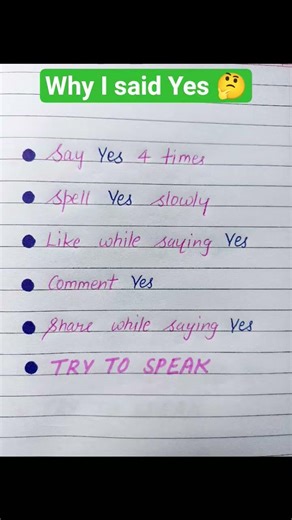 Why I said Yes 🤔
Say Yes 4 times
Spell Yes slowly
Like while saying Yes
Comment Yes
Share while saying Yes
TRY TO SPEAK